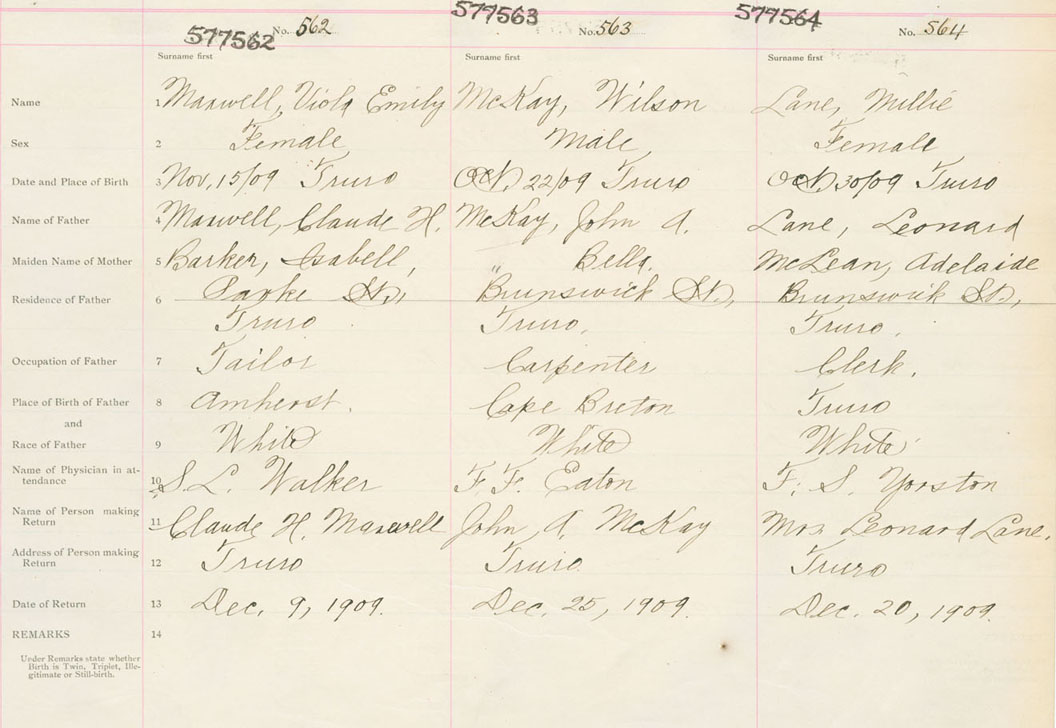 577562 No. 562 577563 No. 563 577564 No. 564
Surname first Surname first Surname first
Name 1 Maxwell, Viola Emily McKay, Wilson Lane, Millie
Sex 2 Female Male Female
Date and Place of Birth 3 Nov. 15/09 Truro Oct 22/09 Truro Oct 30/09 Truro
Name of Father 4 Maxwell, Claude H. McKay, John A. Lane, Leonard
Maiden Name of Mother 5 Barker, Isabell, " Bella. McLean, Adelaide
Residence of Father 6 St., Brunswick St., Brunswick St.,
Truro Truro, Truro.
Occupation of Father 7 Tailor Carpenter Clerk.
Place of Birth of Father 8 Amherst. Cape Breton Truro
and
Race of Father 9 White White White
Name of Physician in at-
tendance 10 S. L. Walker F. F. Eaton F. S. Yorston
Name of Person making
Return 11 Claude H. Maxwell John A. McKay Mrs Leonard Lane.
Address of Person making
Return 12 Truro Truro Truro
Date of Return 13 Dec. 9, 1909. Dec. 25, 1909. Dec. 20, 1909.
REMARKS 14
Under Remarks state whether
Birth is Twin, Triplet, Ille-
gitimate or Still-birth.